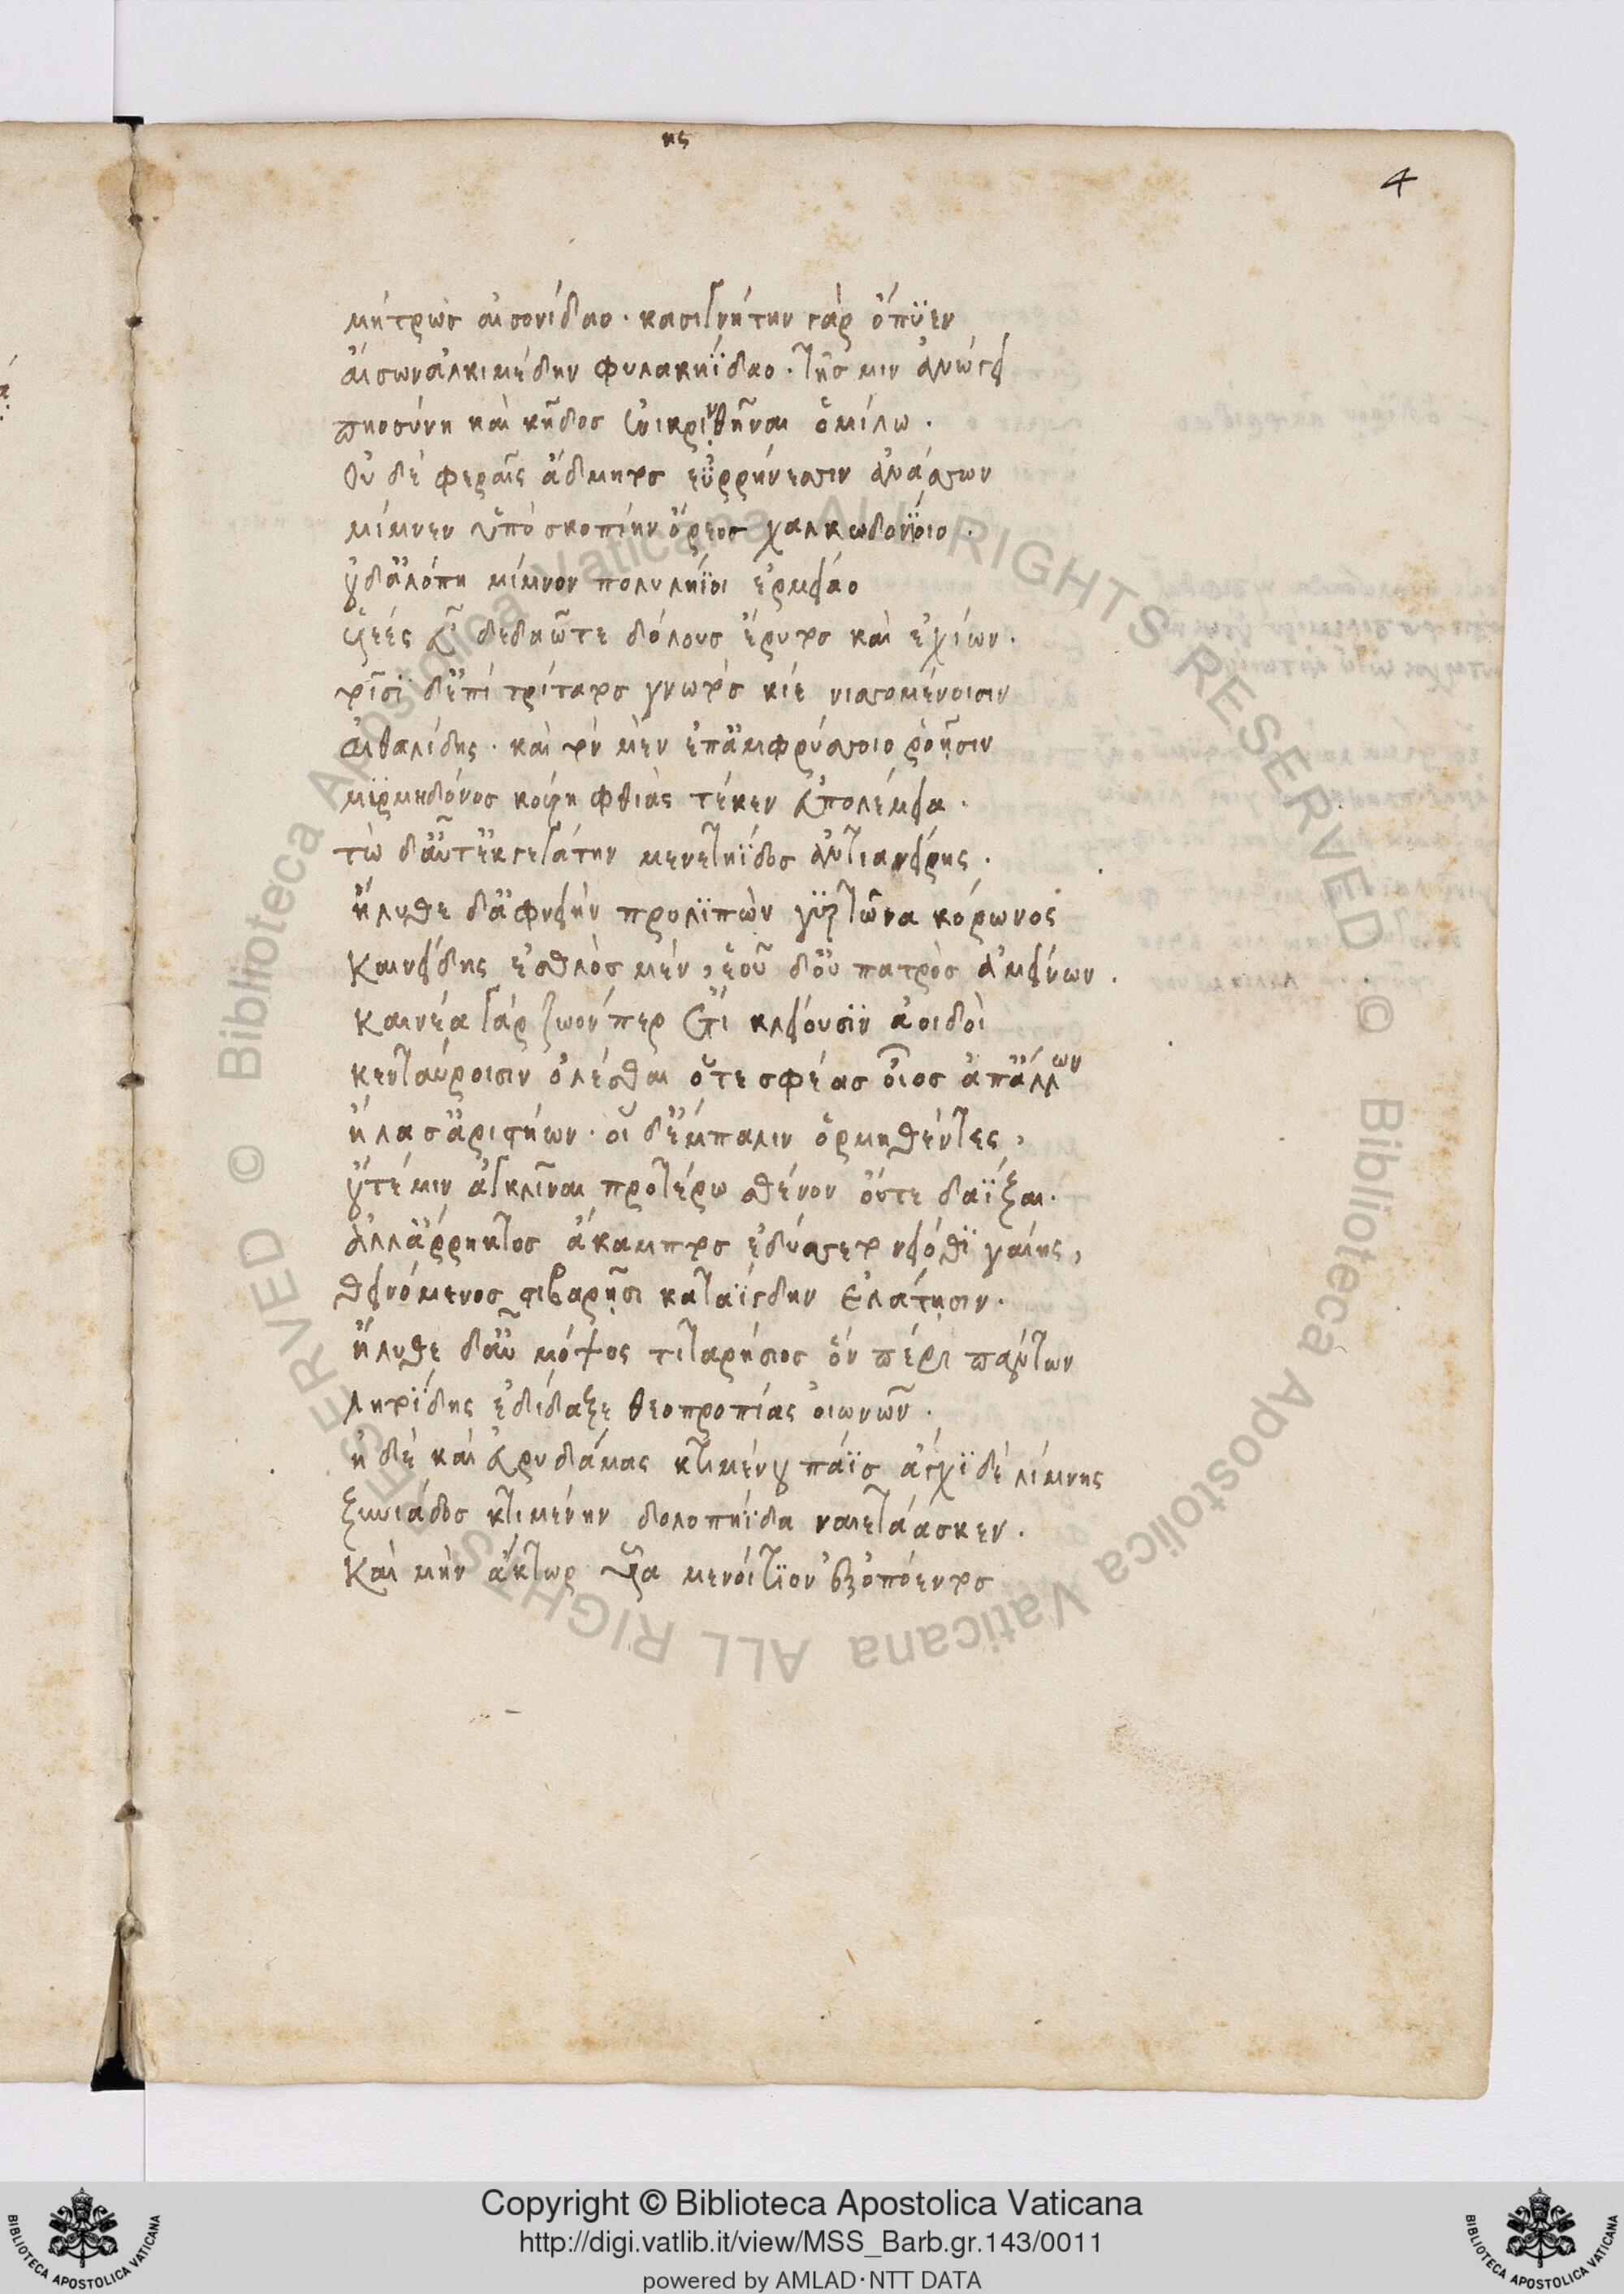 κς
4
μήτρως αἰσονίδαο· κασιγνήτην γὰρ ὄπϋεν
ἀίσων ἀλκιμέδην φυλακηΐδαο· τῆς μιν ἀνώγει
πηοσύνη καὶ κῆδος ἐνικρινθῆναι ὁμίλω.
Οὐ δὲ φεραῖς ἄδμητος ἐϋρρήνεσσιν ἀνάσσων
μίμνεν ὑπὸ σκοπίην ὄρεος χαλκωδονΐοιο.
οὐδ' ἀλόπη μίμνον πολυλήϊοι ἑρμείαο
υἱέες εὖ δεδαῶτε δόλους ἔρυτος καὶ ἐχίων.
τοῖσϊ δ' ἐπὶ τρίτατος γνωτὸς κίε νισσομένοισιν
αἰθαλίδης· καὶ τὸν μὲν ἐπ' ἀμφρύσσοιο ῥοῇσιν
μϋρμηδόνος κούρη φθιὰς τέκεν εὐπολέμεια.
τὼ δ' αὖτ' ἐκγεγάτην μενετηΐδος ἀντιανείρης.
ἤλυθε δ' ἀφνειὴν προλϊπὼν γϋρτῶνα κόρωνος
Καινείδης ἐσθλὸς μέν, ἑοῦ δ' οὐ πατρὸς ἀμείνων.
Καινέα γὰρ ζωόν περ ἔτι κλείουσϊν ἀοιδοὶ
κενταύροισιν ὀλέσθαι ὅτε σφέας οἶος ἀπ' ἄλλων
ἤλασ' ἀριστήων· οἱ δ' ἔμπαλιν ὁρμηθέντες,
οὔτέ μιν ἀγκλῖναι προτέρω σθένον οὔτε δαΐξαι.
ἀλλ' ἄρρηκτος ἄκαμπτος ἐδύσσετο νειόθϊ γαίης,
θεινόμενος στιβαρῇσι καταΐγδην ἐλάτῃσιν.
ἤλυθε δ' αὖ μόψος τιταρήσιος ὃν πέρι πάντων
λητοΐδης ἐδίδαξε θεοπροπίας οἰωνῶν.
ἠ δὲ καὶ εὐρυδάμας κτιμένου πάϊς ἄγχϊ δὲ λίμνης
ξυνιάδος κτιμένην δολοπηΐδα ναιετάασκεν.
Καὶ μὴν ἄκτωρ υἷα μενοίτϊον ἐξ ὀπόεντος
Copyright © Biblioteca Apostolica Vaticana
http://digi.vatlib.it/view/MSS_Barb.gr.143/0011
powered by AMLAD·NTT DATA